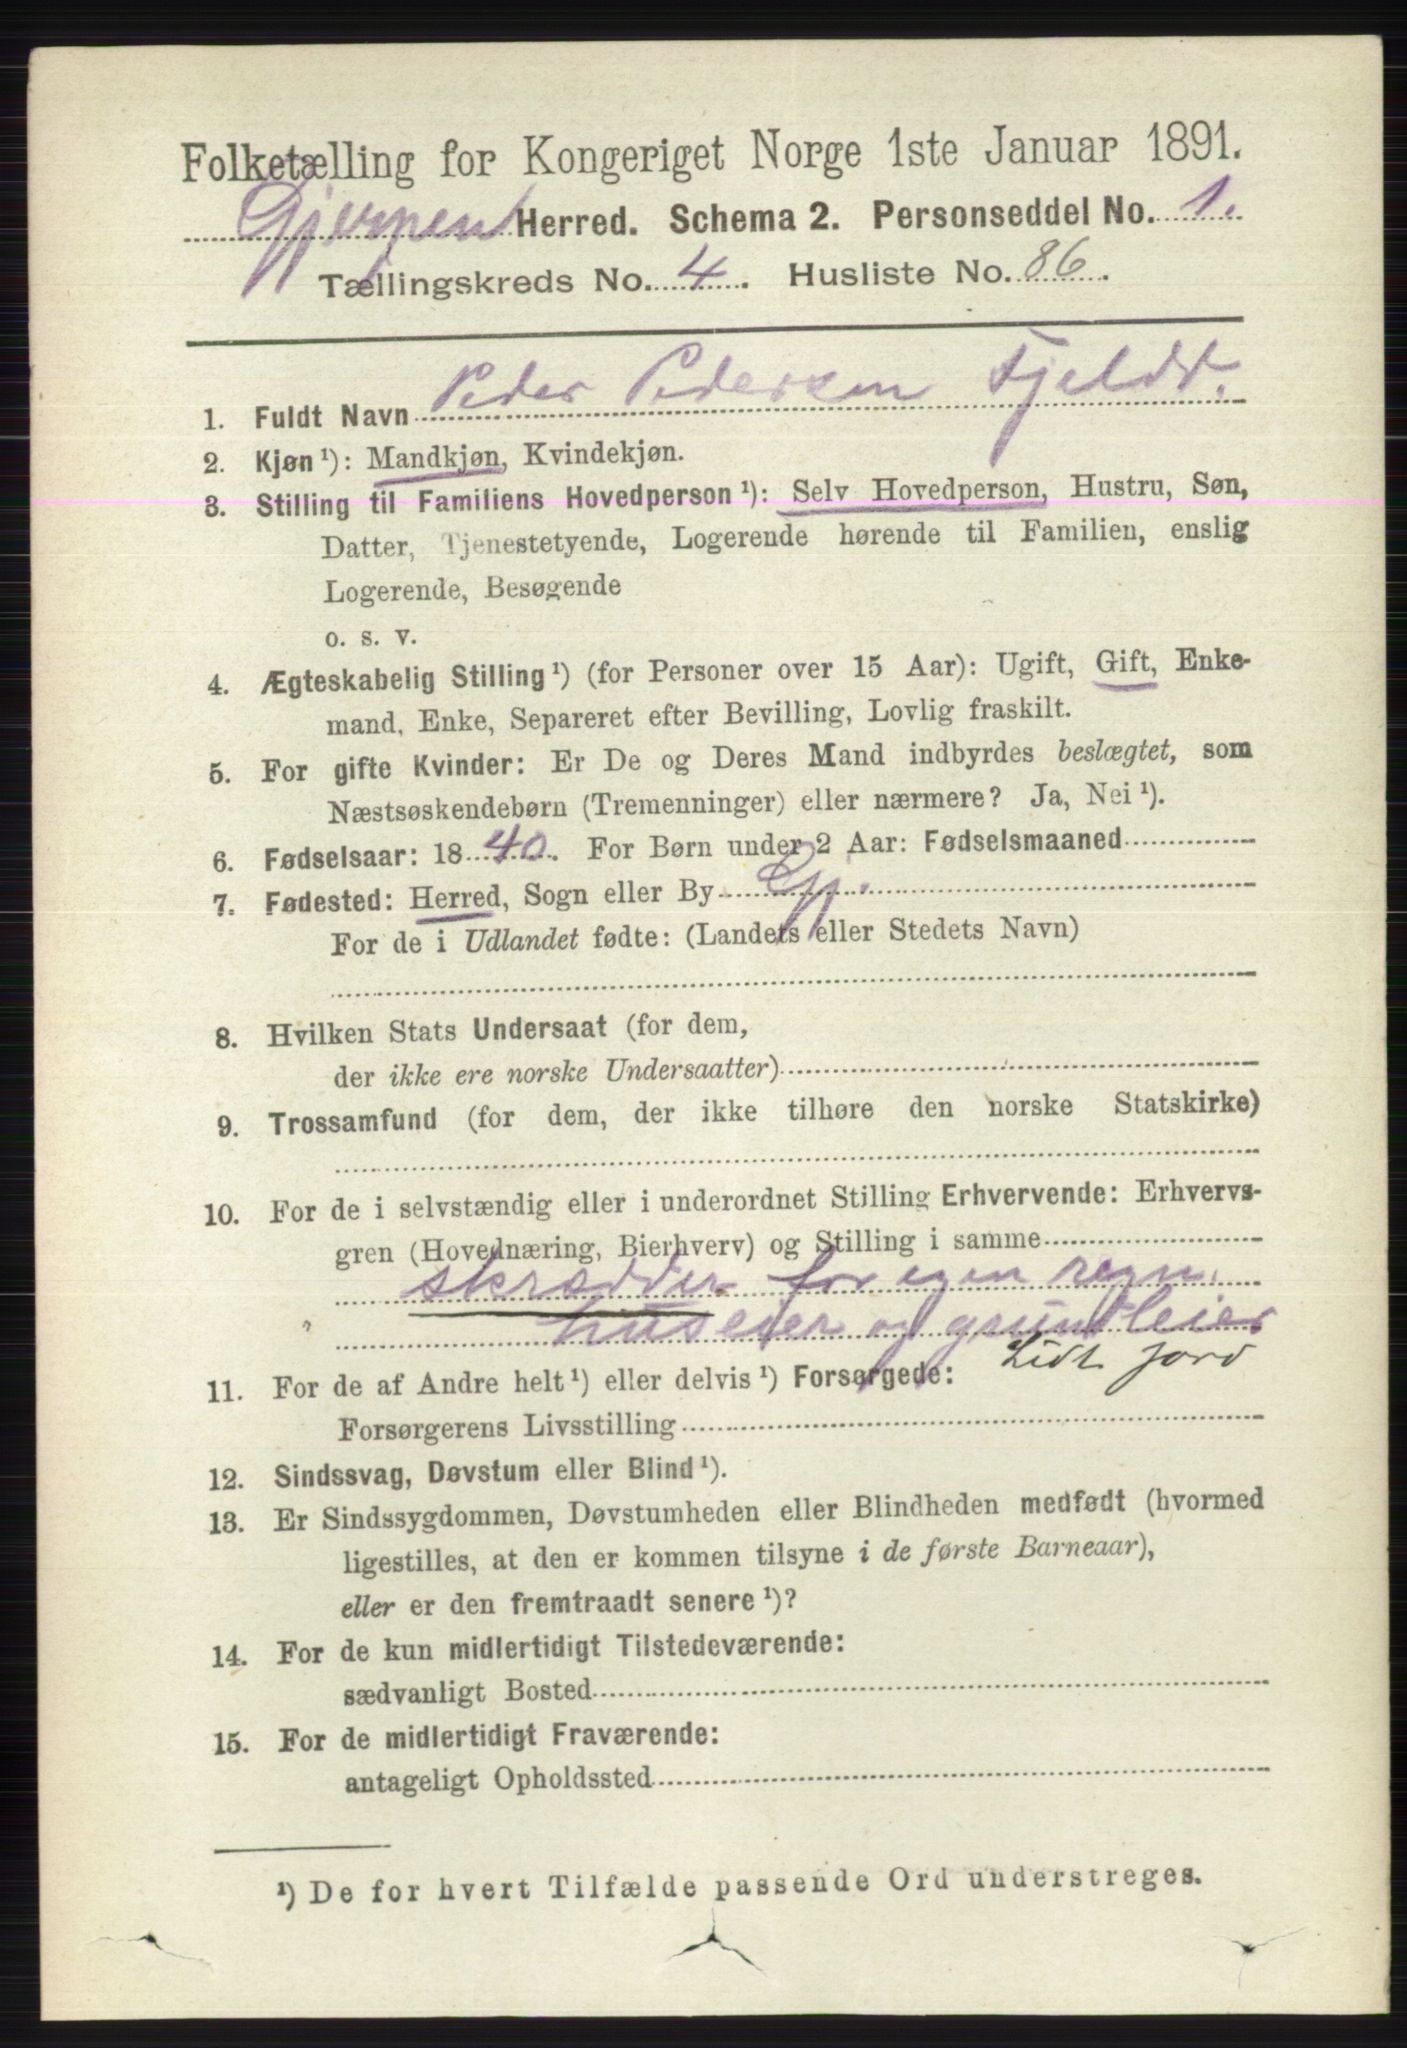 Folketælling for Kongeriget Norge 1ste Januar 1891.
Gjerpen Herred. Schema 2. Personseddel No. 1.
Tællingskreds No. 4. Husliste No. 86.
1. Fuldt Navn Peder Pedersen Fjeldt.
2. Kjøn ¹): Mandkjøn, Kvindekjøn.
3. Stilling til Familiens Hovedperson ¹): Selv Hovedperson, Hustru, Søn,
Datter, Tjenestetyende, Logerende hørende til Familien, enslig
Logerende, Besøgende
o. s. v.
4. Ægteskabelig Stilling ¹) (for Personer over 15 Aar): Ugift, Gift, Enke-
mand, Enke, Separeret efter Bevilling, Lovlig fraskilt.
5. For gifte Kvinder: Er De og Deres Mand indbyrdes beslægtet, som
Næstsøskendebørn (Tremenninger) eller nærmere? Ja, Nei ¹).
6. Fødselsaar: 1840. For Børn under 2 Aar: Fødselsmaaned
7. Fødested: Herred, Sogn eller By Gj.
For de i Udlandet fødte: (Landets eller Stedets Navn)
8. Hvilken Stats Undersaat (for dem,
der ikke ere norske Undersaatter)
9. Trossamfund (for dem, der ikke tilhøre den norske Statskirke)
10. For de i selvstændig eller i underordnet Stilling Erhvervende: Erhvervs-
gren (Hovednæring, Bierhverv) og Stilling i samme
skrædder for egen regn.
huseier og grundleier
Lidt jord
11. For de af Andre helt ¹) eller delvis ¹) Forsørgede:
Forsørgerens Livsstilling
12. Sindssvag, Døvstum eller Blind ¹).
13. Er Sindssygdommen, Døvstumheden eller Blindheden medfødt (hvormed
ligestilles, at den er kommen tilsyne i de første Barneaar),
eller er den fremtraadt senere ¹)?
14. For de kun midlertidigt Tilstedeværende:
sædvanligt Bosted
15. For de midlertidigt Fraværende:
antageligt Opholdssted
¹) De for hvert Tilfælde passende Ord understreges.